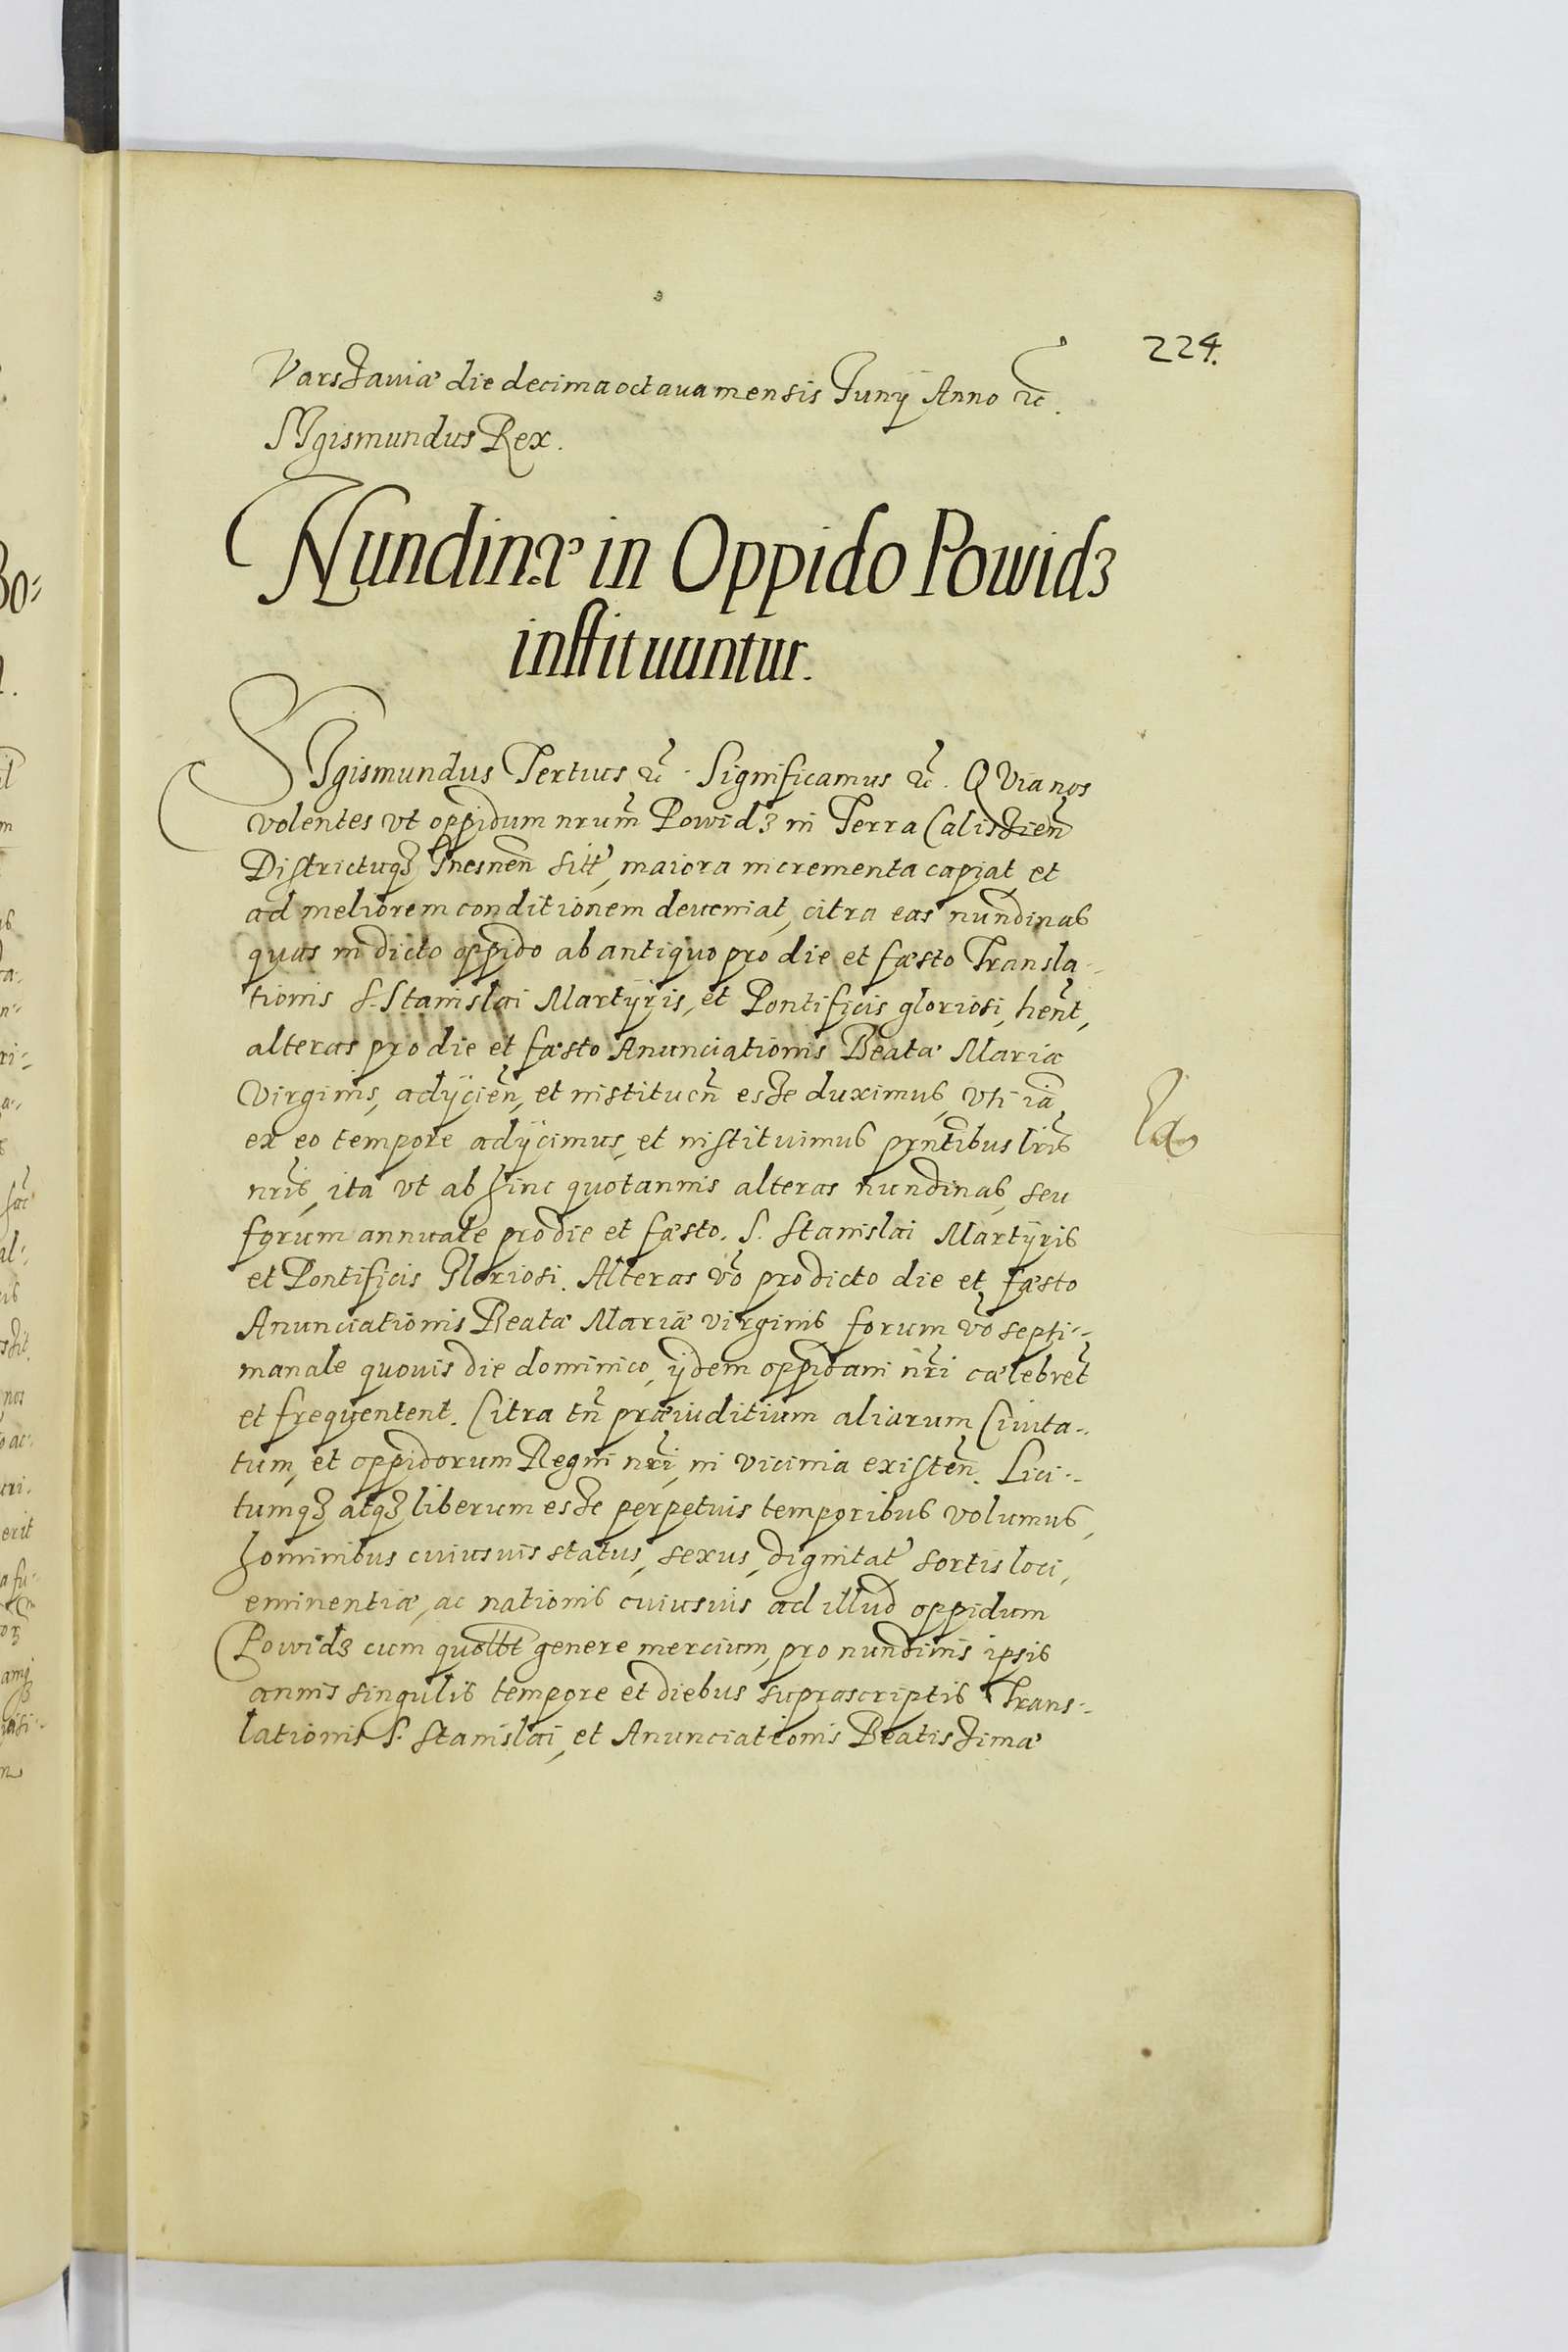 224.
Varssauiæ die decima octaua mensis Junij Anno etc̃.
SIgismundus Rex.
Nundinæ in Oppido Powidz
instituuntur.
SIgismundus Tertius etc̃. Significamus etc̃. QVia nos
volentes vt oppidum nrum̃ Powidz in Terra Calissień
Districtuqȝ Gnesneñ sitt̃, maiora incrementa capiat et
ad meliorem conditionem deueniat, citra eas nundinas
quas in dicto oppido ab antiquo pro die et fæsto Transla-
tionis S. Stanislai Martÿris, et Pontificis gloriosi, heñt,
alteras pro die et fæsto Anunciationis Beatæ Mariæ
Virginis, adijcieñ, et institueñ esse duximus, vti iã
ex eo tempore adijcimus, et instituimus prñtibus lris̃
nris̃, ita vt ab hinc quotannis alteras nundinas, seu
forum annuale pro die et fæsto. S. Stanislai Martÿris
et Pontificis Gloriosi. Alteras võ pro dicto die et fæsto
Anunciationis Beatæ Mariæ virginis forum võ septi-
manale quouis die dominico, ijdem oppidani nr̃i cælebret̃
et frequentent. Citra tñ præiuditium aliarum Ciuita-
tum, et oppidorum Regni nr̃i, in vicinia existeñ. Lici-
tumqȝ atqȝ liberum esse perpetuis temporibus volumus,
hominibus cuiusuis status, sexus, dignitat̃ sortis loci,
eminentiæ, ac nationis cuiusuis ad illud oppidum
Powidz cum quolbt̃ genere mercium, pro nundinis ipsis
annis singulis tempore et diebus suprascriptis Trans-
lationis S. Stanislai, et Anunciationis Beatissimæ